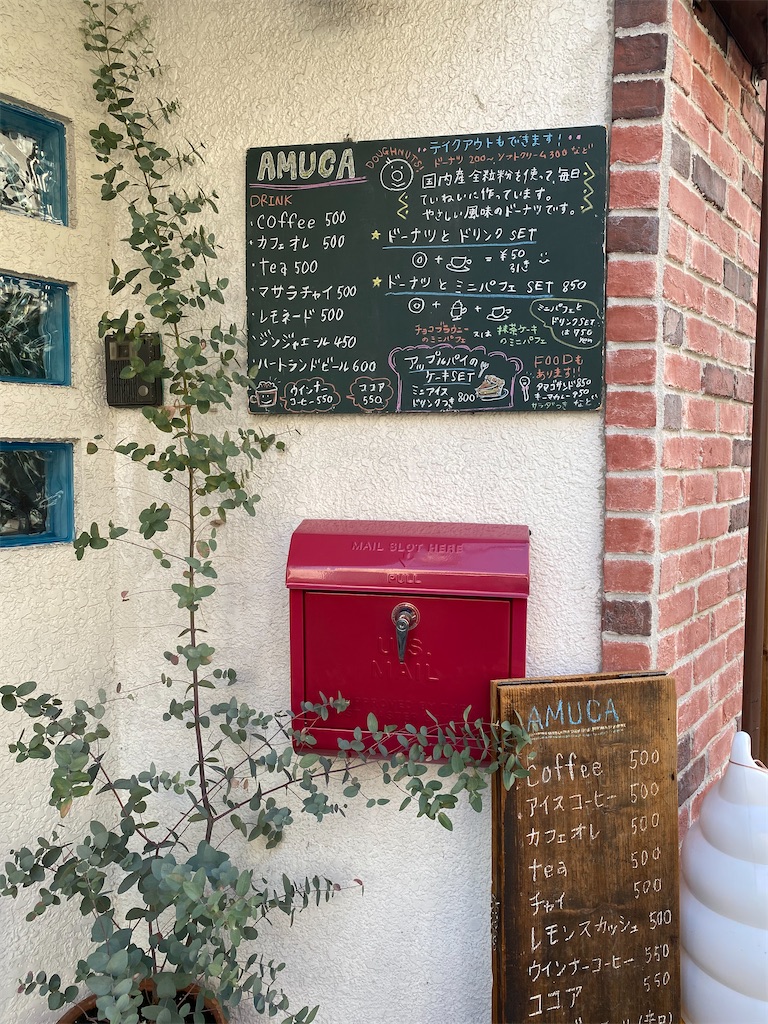 AMUCA
DRINK
・coffee 500
・カフェオレ 500
・tea 500
・マサラチャイ 500
・レモネード 500
・ジンジャエール 450
・ハートランドビール 600
ウインナー
コーヒー 550
ココア
550
DOUGHNUTS!
テイクアウトもできます!
ドーナツ 200〜 ソフトクリーム 300 など
国内産全粒粉を使って毎日
ていねいに作っています。
やさしい風味のドーナツです。
ドーナツとドリンク SET
+ = ¥50
引き
ドーナツとミニパフェ SET 850
+ +
チョコブラウニー
のミニパフェ
又は
抹茶ケーキ
のミニパフェ
ミニパフェと
ドリンクSET
は 750
yen
アップルパイの
ケーキSET
ミニアイス
ドリンクつき 800
FOODも
あります!!
タマゴサンド 850
キーマカレー 950
サラダつき など
MAIL SLOT HERE
PULL
U.S.
MAIL
AMUCA
Coffee 500
アイスコーヒー 500
カフェオレ 500
tea 500
チャイ 500
レモンスカッシュ 500
ウインナーコーヒー 550
ココア 550